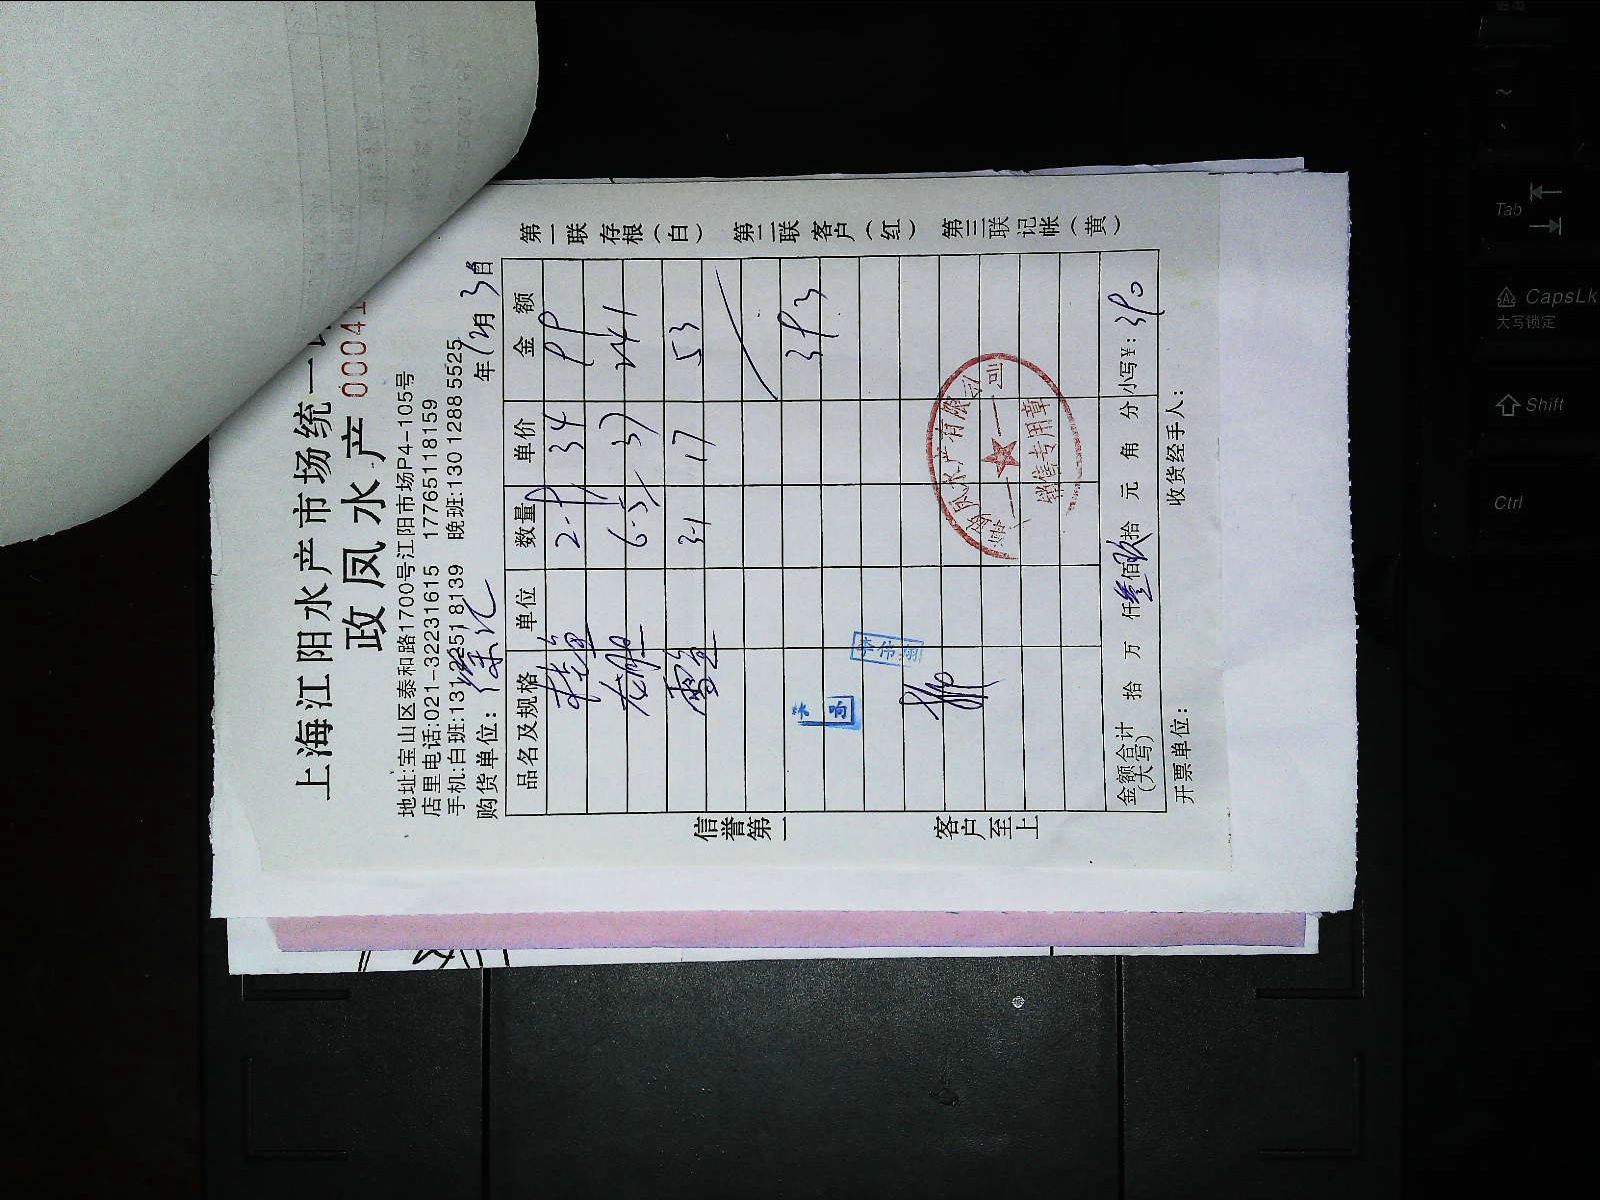 上海江阳水产市场统一
政凤水产 00041
地址:宝山区泰和路1700号江阳市场P4-105号
店里电话:021-32231615 17765118159
手机:白班:131 2251 8139 晚班:130 1288 5525
购货单位: 徐汇 年 12月 3日
品名及规格 单位 数量 单价 金额
桂鱼 2.9 34 99
6.5 37 241
鱼 3.1 17 53
393
水产有限公司
销售专用章
金额合计(大写) 拾 万 仟叁佰玖拾 元 角 分 小写¥: 390
开票单位: 收货经手人:
信誉第一 客户至上
第一联 存根(白) 第二联 客户(红) 第三联 记帐(黄)
Tab
CapsLk
大写锁定
Shift
Ctrl